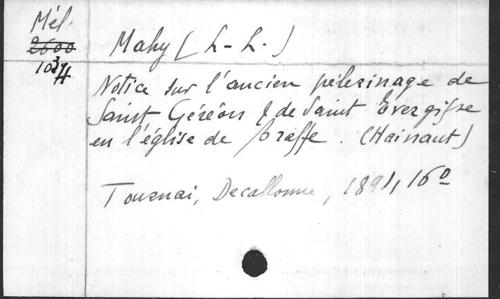 Mél.
2600
1034
Mahy (L-L.)
Notice sur l'ancien pèlerinage de
Saint Géréon & de Saint Evergisse
en l'église de Braffe. (Hainaut)
Tournai, Decallonne, 1891, 16º